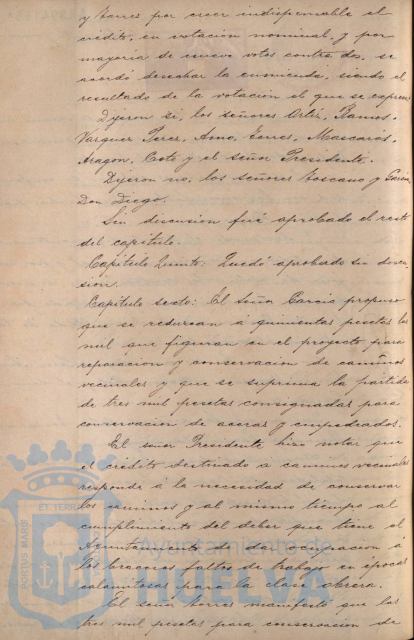 y Torres por creer indispensable el
crédito, en votación nominal, y por
mayoria de nueve votos contra dos, se
acordó desechar la enmienda, siendo el
resultado de la votación el que se expresa
Dijeron si, los señores Ortiz, Ramos,
Vazquez Perez, Amo, Torres, Mascarós,
Aragon, Coto y el señor Presidente.
Dijeron no, los señores Toscano y Garcia
Don Diego.
Sin discusion fué aprobado el resto
del capitulo.
Capitulo Quinto: Quedó aprobado sin discu
sion.
Capitulo sexto: El Señor Garcia propuso
que se reduzcan á quinientas pesetas las
mil que figuran en el proyecto para
reparacion y conservacion de caminos
vecinales y que se suprima la partida
de tres mil pesetas consignadas para
conservacion de aceras y empedrados.
El señor Presidente hizo notar que
el crédito destinado a caminos vecinales
responde á la necesidad de conservar
los caminos y al mismo tiempo al
cumplimiento del deber que tiene el
Ayuntamiento de dar ocupacion á
los braceros faltos de trabajo en épocas
calamitosas para la clase obrera.
El señor Torres manifestó que las
tres mil pesetas para conservacion de
PORTUS MARIS ET TERRÆ
Ayuntamiento de
HUELVA